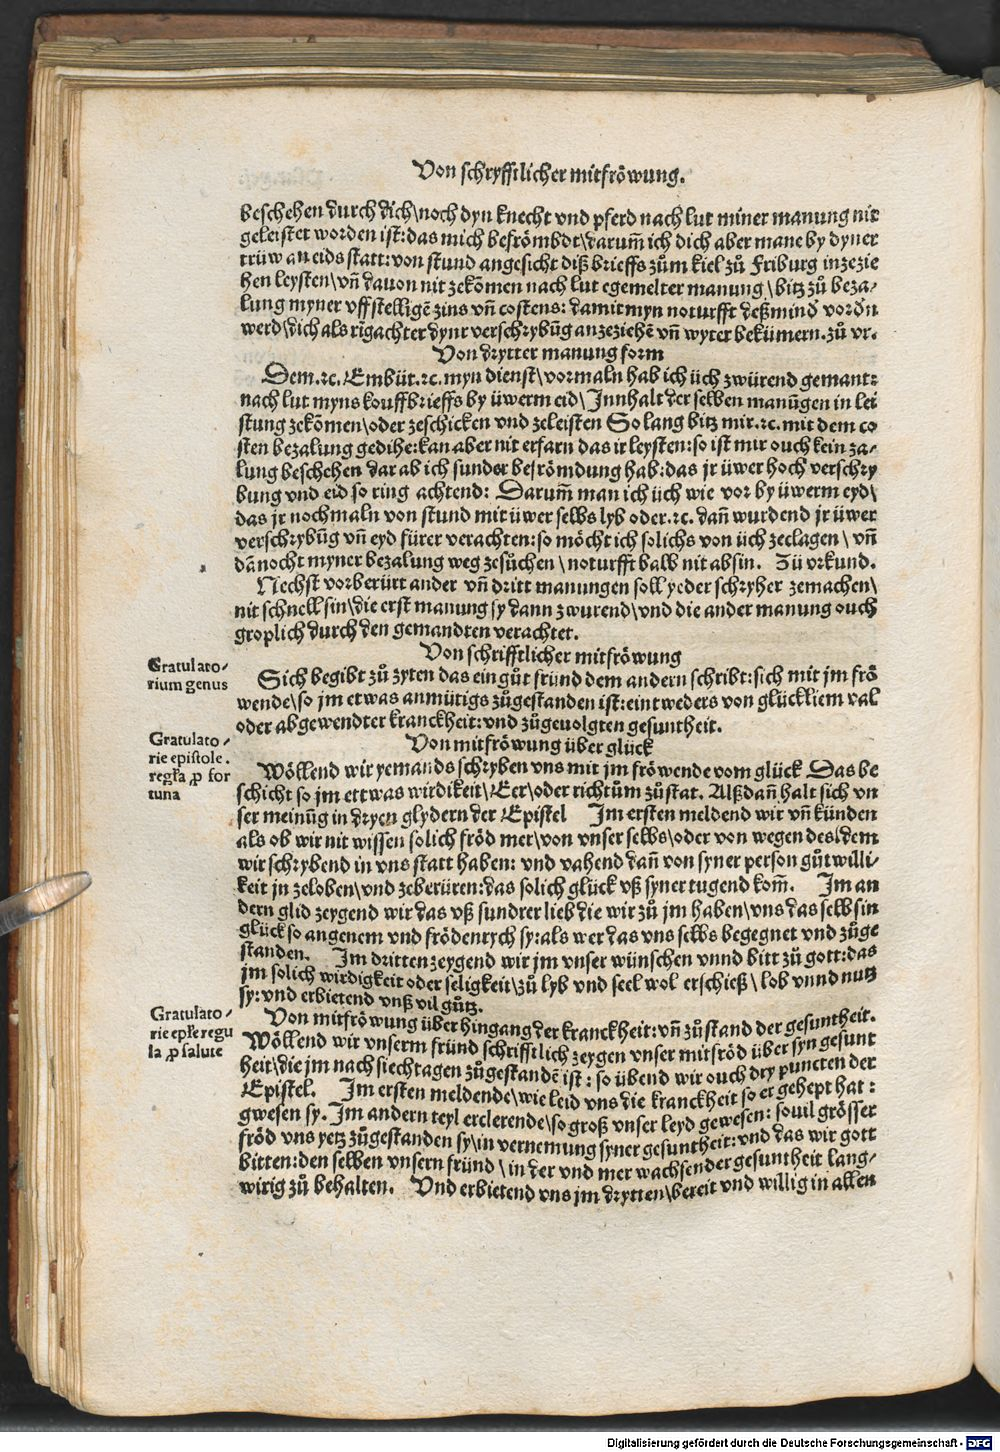 Von schryfftlicher mitfröwung.
beschehen durch dich\noch dyn knecht vnd pferd nach lut miner manung nit
geleistet worden ist:das mich befrömbdt\darum̄ ich dich aber mane by dyner
trüw an eids statt:von stund angesicht diß brieffs zům kiel zů Friburg inzezie
hen leysten\vn̄ dauon nit zekōmen nach lut egemelter manung\bitz zů beza⸗
lung myner vffstelligē zins vn̄ costens: damit myn noturfft deßmind vordn
werd\dich als rīgachter dynr verschrybūg anzeziehē vn̄ wyter bekümern. zů vr.
Von drytter manung form
Dem.ꝛc. Embüt.ꝛc. myn dienst\vormaln hab ich üch zwürend gemant:
nach lut myns kouffbrieffs by üwerm eid\Innhalt der selben manūgen in lei
stung zekōmen\oder zeschicken vnd zeleisten So lang bitz mir.ꝛc. mit dem co
sten bezalung gedihe:kan aber nit erfarn das ir leysten:so ist mir ouch kein za⸗
lung beschehen dar ab ich sunder befrömdung hab:das jr üwer hoch verschry
bung vnd eid so ring achtend: Darum̄ man ich üch wie vor by üwerm eyd\
das jr nochmaln von stund mit üwer selbs lyb oder.ꝛc. dan̄ wurdend jr üwer
verschrybūg vn̄ eyd fürer verachten:so möcht ich solichs von üch zeclagen\ vn̄
dānocht myner bezalung weg zesůchen\noturfft halb nit absin. Zü vrkund.
Nechst vorberürt ander vn̄ dritt manungen soll yeder schryher zemachen\
nit schnell sin\die erst manung sy dann zwurend\vnd die ander manung ouch
groplich durch den gemandten verachtet.
Von schrifftlicher mitfröwung
Gratulato⸗
rium genus
Sich begibt zů zyten das ein gůt fründ dem andern schribt:sich mit jm frö
wende\so jm etwas anmütigs zůgestanden ist:eintweders von glückliem val
oder abgewendter kranckheit:vnd zůgeuolgten gesuntheit.
Von mitfröwung über glück
Gratulato⸗
rie epistole.
regl̄a ꝓ for
tuna
Wöllend wir yemands schryben vns mit jm fröwende vom glück Das be
schicht so jm ettwas wirdikeit\Eer\oder richtům zůstat. Alßdan̄ halt sich vn
ser meinūg in dryen glydern der Epistel Im ersten meldend wir vn̄ künden
als ob wir nit wissen solich fröd mer\von vnser selbs\oder von wegen des\dem
wir schrybend in vns statt haben: vnd vahend dan̄ von syner person gůtwilli⸗
keit jn zeloben\vnd zeberüren:das solich glück vß syner tugend kom̄. Im an
dern glid zeygend wir das vß sundrer lieb die wir zů jm haben\vns das selb sin
glück so angenem vnd frödenrych sy:als wer das vns selbs begegnet vnd zůge
standen. Im dritten zeygend wir jm vnser wünschen vnnd bitt zů gott:das
jm solich wirdigkeit oder seligkeit\zů lyb vnd seel wol erschieß\ lob vnnd nutz
sy:vnd erbietend vnß vil gůtz.
Gratulato⸗
rie epl̄e regu
la ꝓ salute
Von mitfröwung über hingang der kranckheit:vn̄ zůstand der gesuntheit.
Wöllend wir vnserm fründ schrifftlich zeygen vnser mitfröd über syn gesunt
heit\die jm nach siechtagen zůgestandē ist: so übend wir ouch dry puncten der
Epistel. Im ersten meldende\wie leid vns die kranckheit so er gehept hat:
gwesen sy. Im andern teyl erclerende\so groß vnser leyd gewesen: souil grösser
fröd vns yetz zůgestanden sy\in vernemung syner gesuntheit:vnd das wir gott
bitten:den selben vnsern fründ\in der vnd mer wachsender gesuntheit lang⸗
wirig zů behalten. Vnd erbietend vns jm drytten\bereit vnd willig in allen
Digitalisierung gefördert durch die Deutsche Forschungsgemeinschaft - DFG